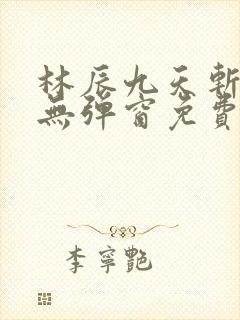 林辰九天斬
無彈窗免費
李寧艷